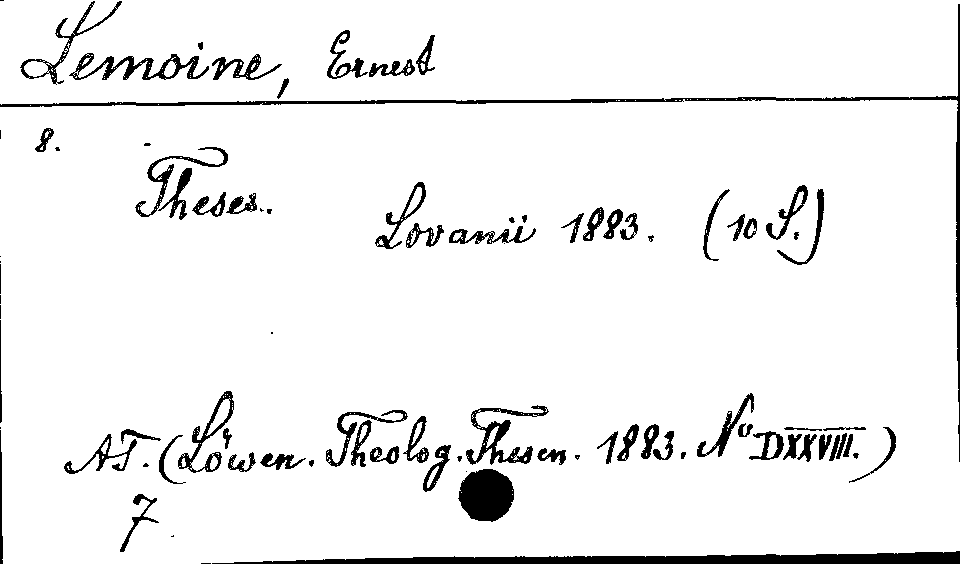 Lemoine, Ernest
8.
Theses.
Lovanii 1883. (10 S.)
AT. (Löwen. Theolog. Thesen. 1883. No DXXVIII.)
7